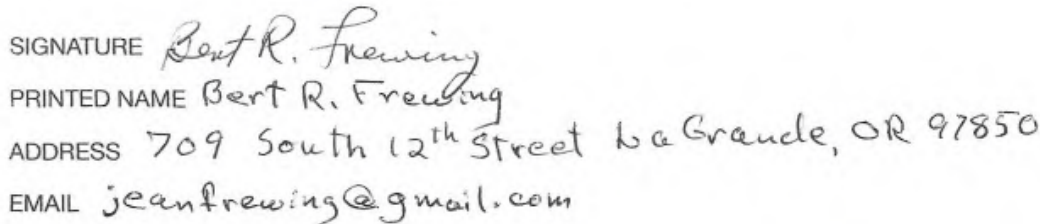 SIGNATURE Bert R. Frewing
PRINTED NAME Bert R. Frewing
ADDRESS 709 South 12th Street La Grande, OR 97850
EMAIL jeanfrewing@gmail.com